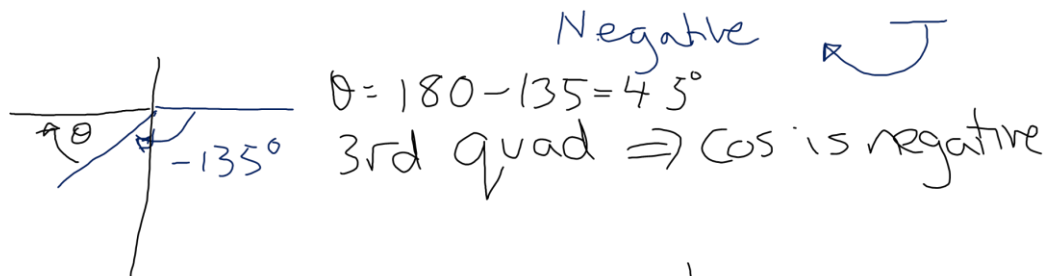 Negative
θ = 180 - 135 = 45°
θ
-135°
3rd quad ⇒ cos is negative